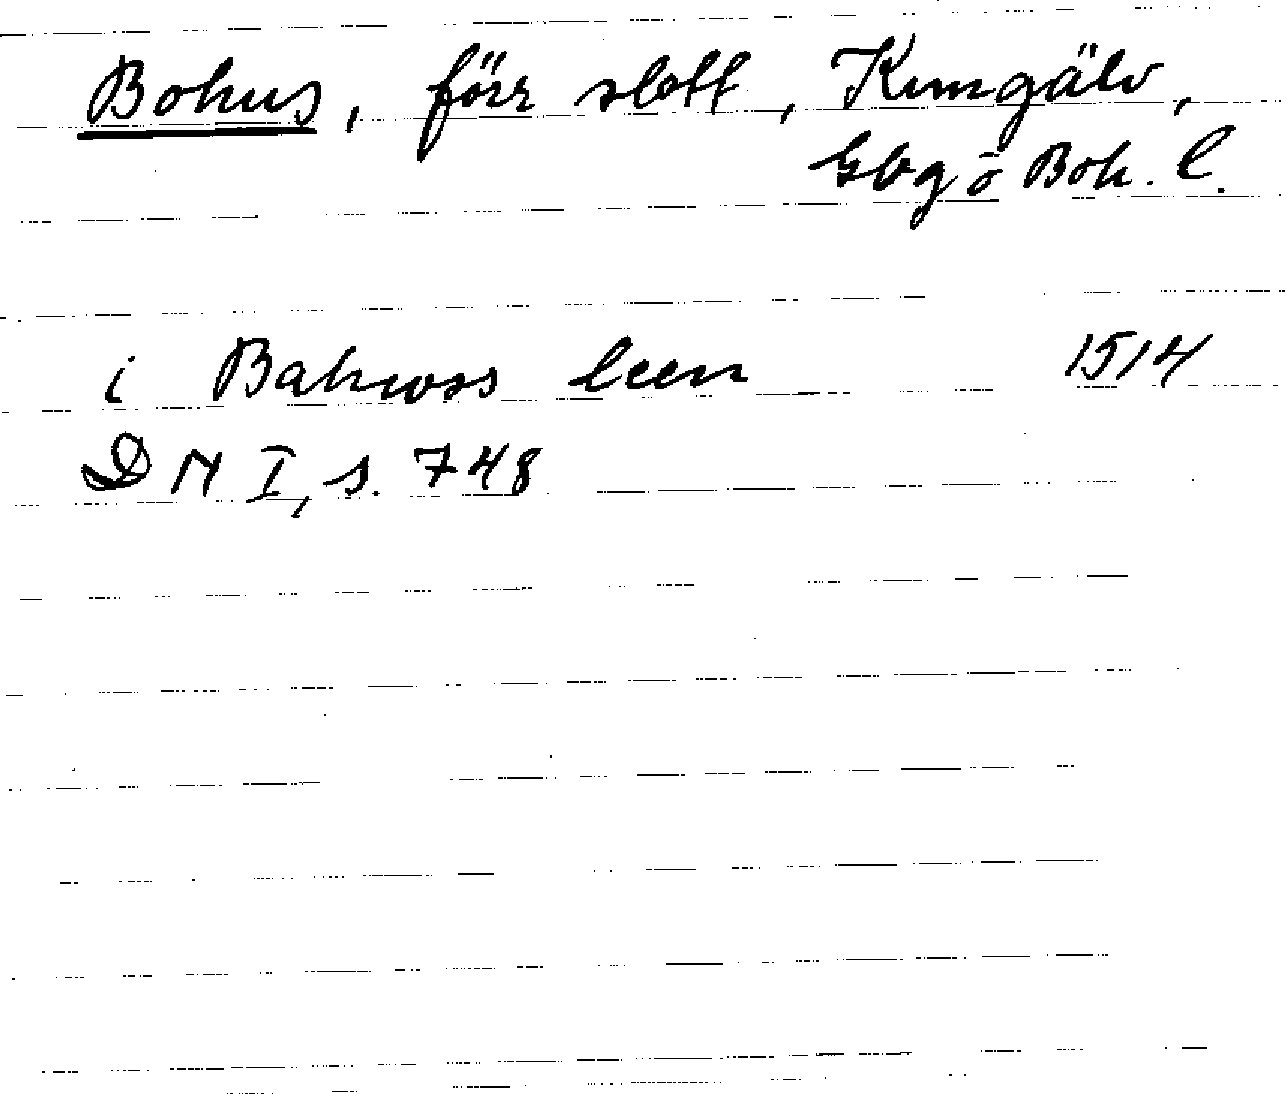 Bohus, förr slott, Kungälv,
Gbg o Boh. l.
i Bahwss leen 1514
DN I, s. 748